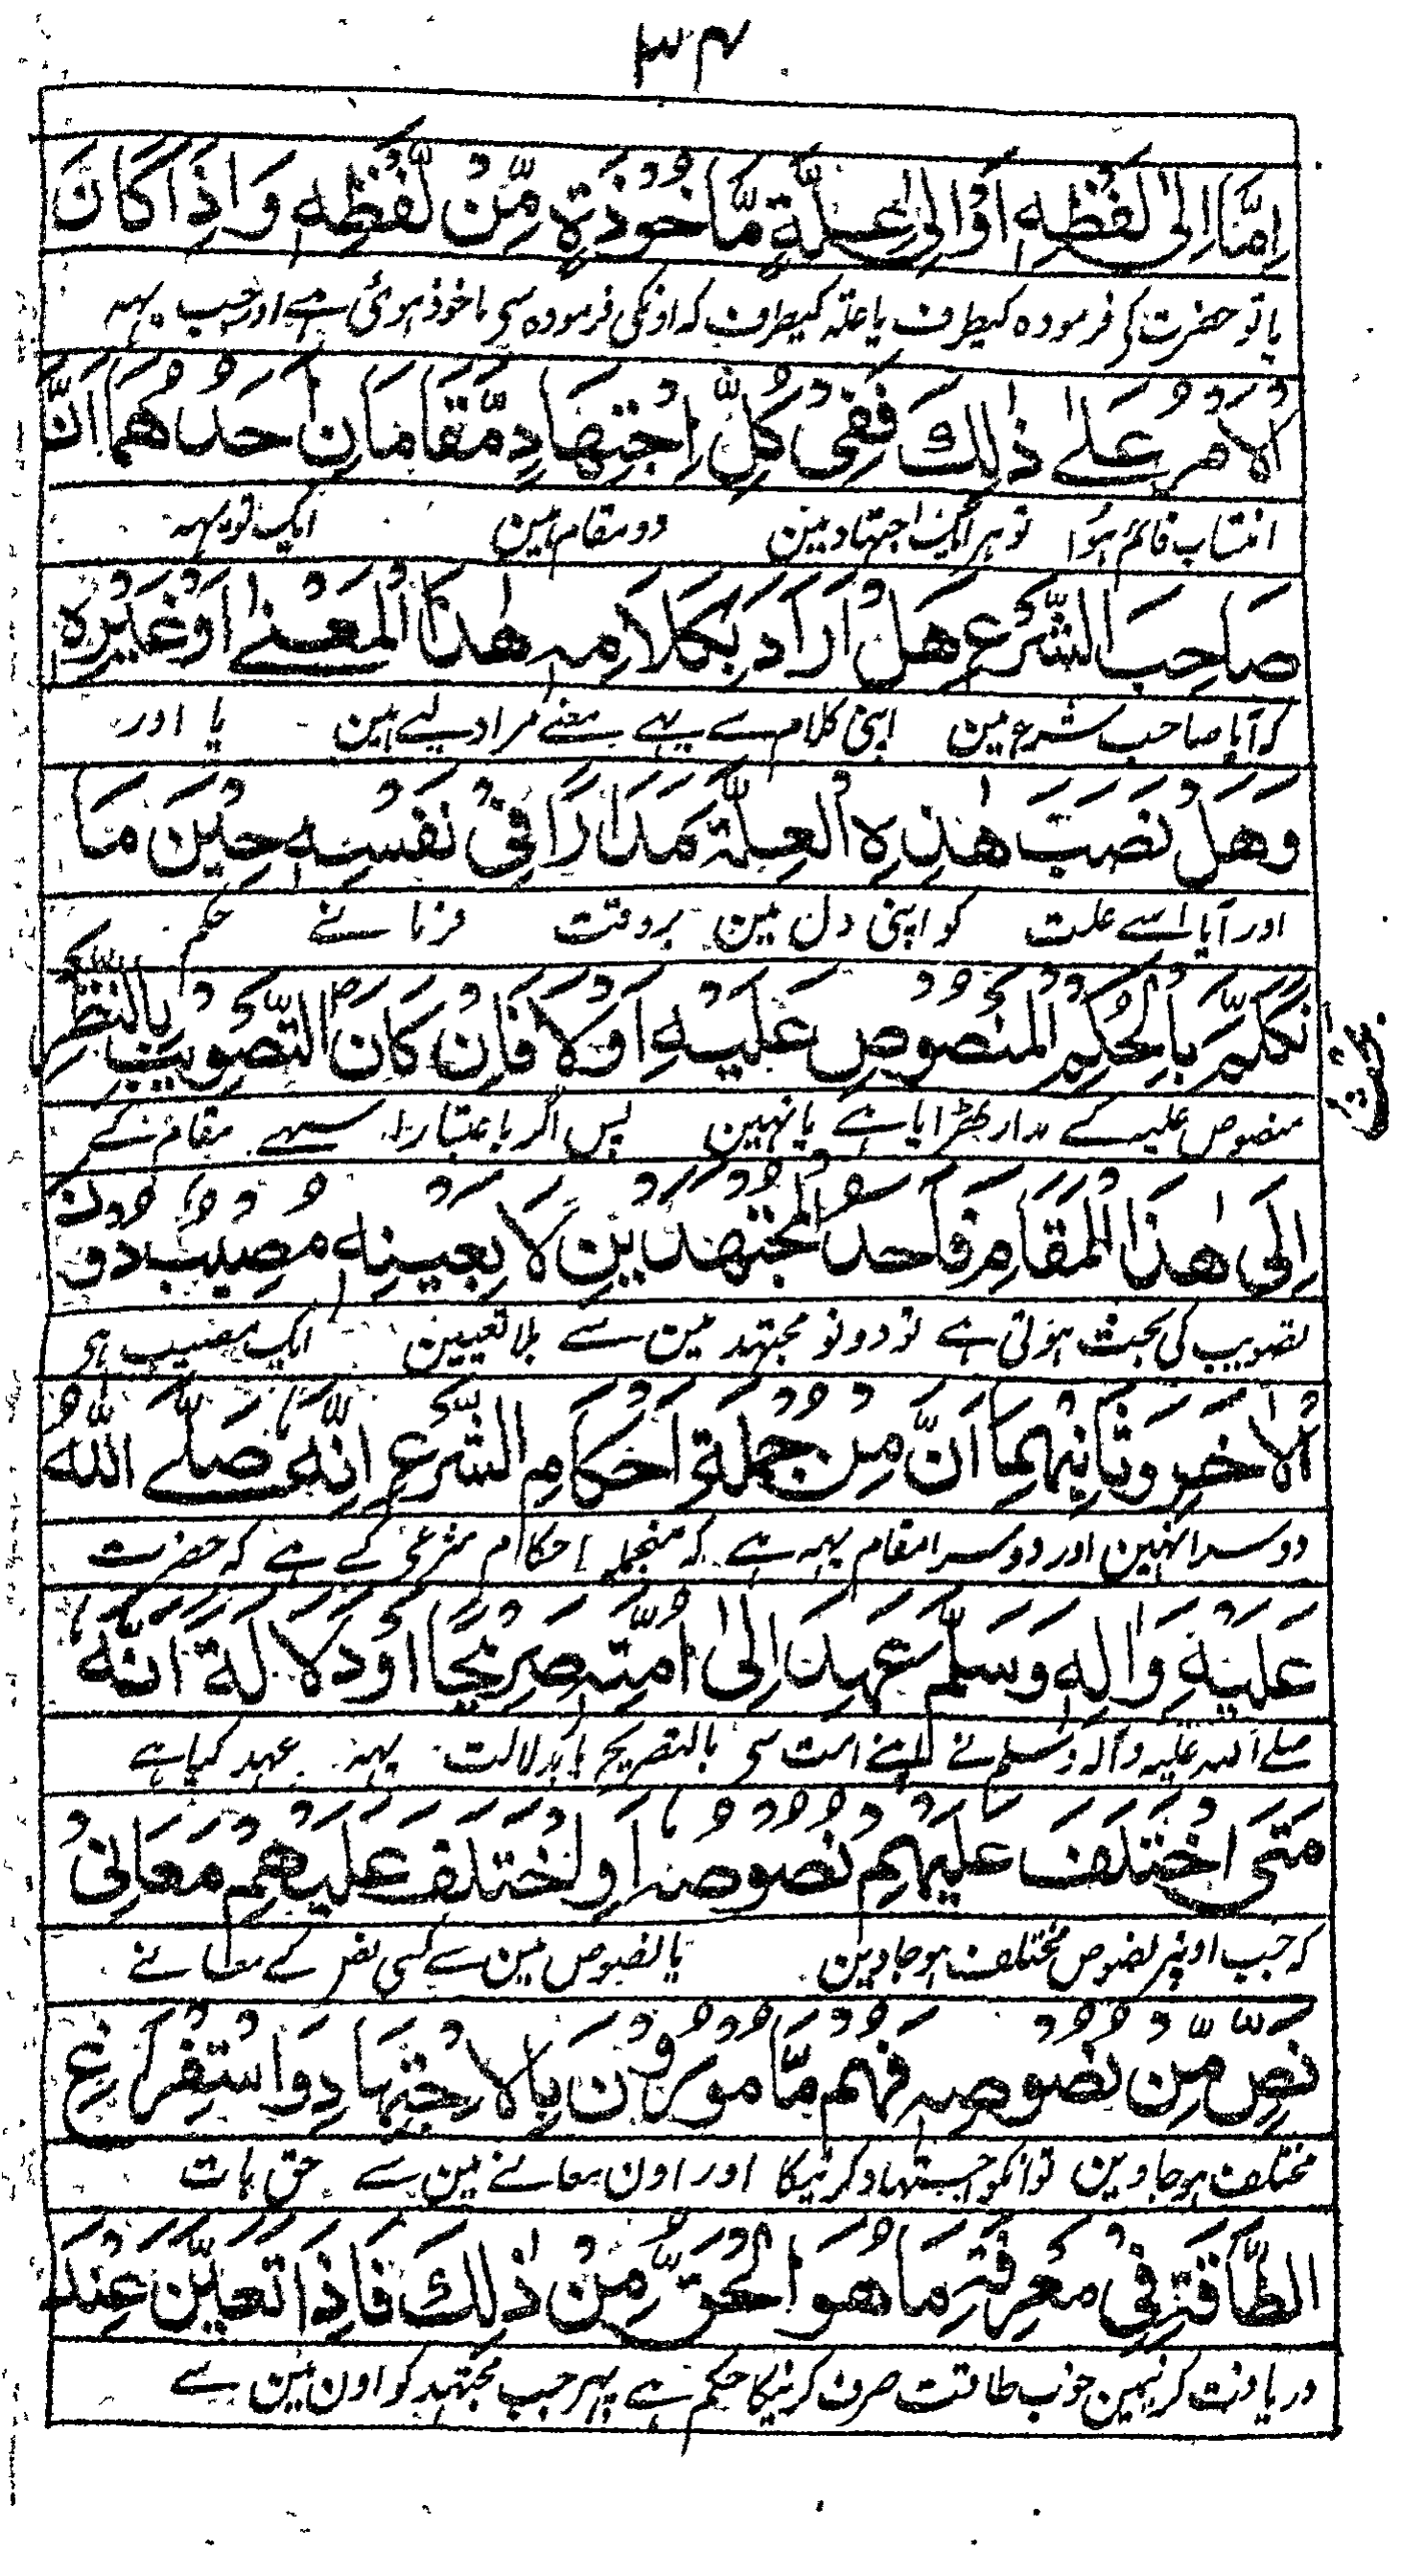 ٣٤
اِمَّا اِلٰى لَفْظِهٖ اَوْ اِلٰى عِلَّةٍ مَّاخُوْذَةٍ مِّنْ لَّفْظِهٖ وَاِذَا كَانَ
یا تو حضرت کی فرمودہ کیطرف یا علۃ کیطرف کہ اونکی فرمودہ سی ماخوذ ہوئی ہے اور جب یہہ
الْاَمْرُ عَلٰے ذٰلِكَ فَفِیْ كُلِّ اِجْتِهَادٍ مَّقَامَانِ اَحَدُهُمَا اَنَّ
انتساب قائم ہوا تو ہر ایک اجتہاد مین دو مقام ہین ایک تو یہہ
صَاحِبَ الشَّرْعِ هَلْ اَرَادَ بِكَلَامِهٖ هٰذَا الْمَعْنٰے اَوْ غَيْرَهٗ
کہ آیا صاحب شرع مین اپنی کلام سے یہے معنے مراد لیے ہین یا اور
وَهَلْ نَصَبَ هٰذِهِ الْعِلَّةَ مَدَارًا فِیْ نَفْسِهٖ حِيْنَ مَا
اور آیا اسے علت کو اپنی دل مین بروقت فرمانے حکم
تَكَلَّمَ بِالْحُكْمِ الْمَنْصُوْصِ عَلَيْهِ اَوْ لَا فَاِنْ كَانَ التَّصْوِيْبُ بِالنَّظَرِ
منصوص علیہ کے مدار ٹھرایا ہے یا نہین پس اگر باعتبار اسیہے مقام کے
اِلٰى هٰذَا الْمَقَامِ فَاَحَدُ الْمُجْتَهِدَيْنِ لَا بِعَيْنِهٖ مُصِيْبٌ دُوْنَ
تصویب کی بحث ہوتی ہے تو دونو مجتہد مین سے بلا تعیین ایک مصیب ہی
الْاٰخَرِ وَثَانِيْهِمَا اَنَّ مِنْ جُمْلَةِ اَحْكَامِ الشَّرْعِ اَنَّهٗ صَلَّے اللّٰهُ
دوسرا نہین اور دوسرا مقام یہہ ہے کہ منجملہ احکام شرعی کے ہے کہ حضرت
عَلَيْهِ وَاٰلِهٖ وَسَلَّمَ عَهِدَ اِلٰى اُمَّتِهٖ صَرِيْحًا اَوْ دَلَالَةً اَنَّهٗ
صلے اللہ علیہ وآلہ وسلم نے اپنے امت سی بالتصریح یا بدلالت یہہ عہد کیا ہے
مَتٰی اخْتَلَفَ عَلَيْهِمْ نُصُوْصُهٗ اَوِ اخْتَلَفَ عَلَيْهِمْ مَعَانِیْ
کہ جب اونپر نصوص مختلف ہو جاوین یا نصوص مین سے کسی نص کے معانے
نَصٍّ مِّنْ نُصُوْصِهٖ فَهُمْ مَّامُوْرُوْنَ بِالْاِجْتِهَادِ وَاسْتِفْرَاغِ
مختلف ہو جاوین تو انکو اجتہاد کرنیکا اور اون معانے مین سے حق بات
الطَّاقَةِ فِیْ مَعْرِفَةِ مَا هُوَ الْحَقُّ مِنْ ذٰلِكَ فَاِذَا تَعَيَّنَ عِنْدَ
دریافت کرنیمین خوب طاقت صرف کرنیکا حکم ہے پہر جب مجتہد کو اون مین سے